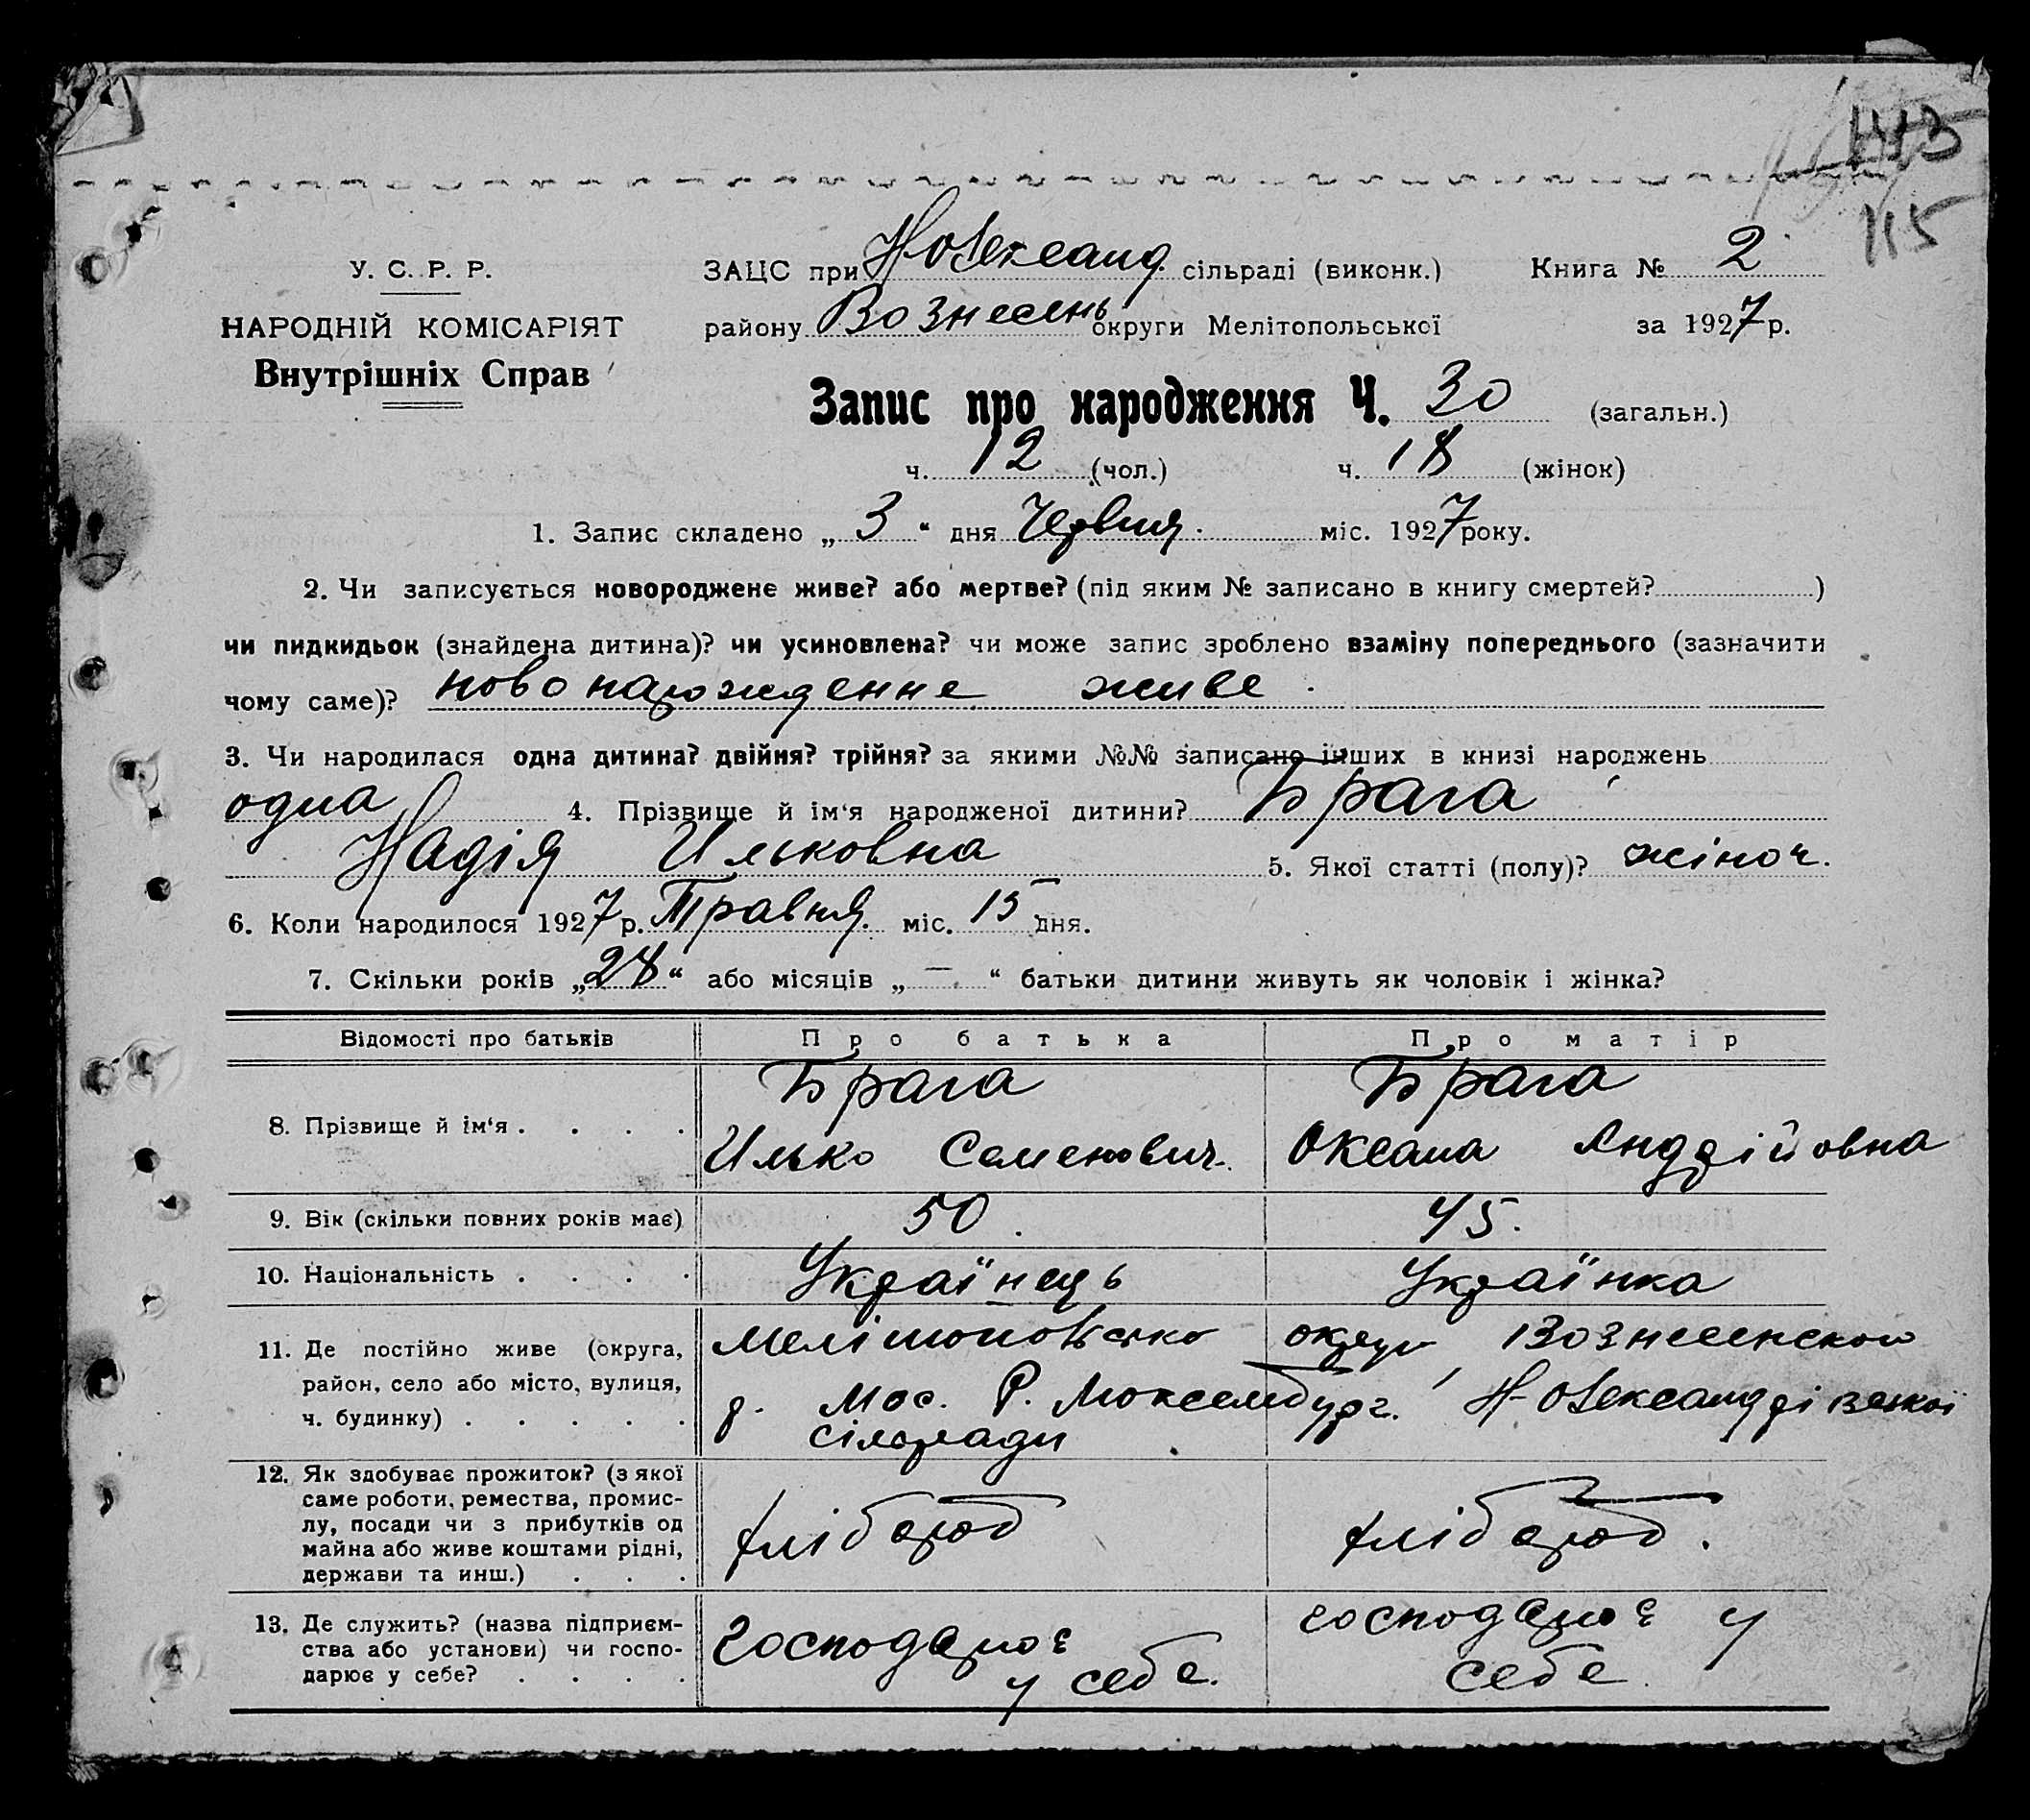 113
115
У. С. Р. Р.
НАРОДНІЙ КОМІСАРІЯТ
Внутрішніх Справ
ЗАЦС при Н Олександ. сільраді (виконк.) Книга № 2
району Вознесень округи Мелітопольської за 1927 р.
Запис про народження Ч. 30 (загальн.)
ч. 12 (чол.) ч. 18 (жінок)
1. Запис складено „ 3 “ дня Червня. міс. 1927 року.
2. Чи записується новороджене живе? або мертве? (під яким № записано в книгу смертей? )
чи пидкидьок (знайдена дитина)? чи усиновлена? чи може запис зроблено взаміну попереднього (зазначити
чому саме)? новонарождение живе.
3. Чи народилася одна дитина? двійня? трійня? за якими №№ записано інших в книзі народжень
одна 4. Прізвище й ім‘я народженої дитини? Брага
Надія Ильковна 5. Якої статті (полу)? жіноч.
6. Коли народилося 1927 р. Травня. міс. 15 дня.
7. Скільки років „28“ або місяців „ — “ батьки дитини живуть як чоловік і жінка?
Відомості про батьків Про батька Про матір
8. Прізвище й ім‘я . . . . Брага Брага
Илько Семенович. Оксана Андрійовна
9. Вік (скільки повних років має) 50. 45.
10. Національність . . . . Українець Українка
11. Де постійно живе (округа, район, село або місто, вулиця, ч. будинку) . . . . .
Мелітопольсько округи Вознесенской
р. Н-Олександрівської
сільради
12. Як здобуває прожиток? (з якої
саме роботи, ремества, промис-
лу, посади чи з прибутків од
майна або живе коштами рідні,
держави та инш.) . . .
хлібороб хлібороб.
13. Де служить? (назва підприєм-
ства або установи) чи госпо-
дарює у себе? . . . .
господарює господарює у
у себе. себе.